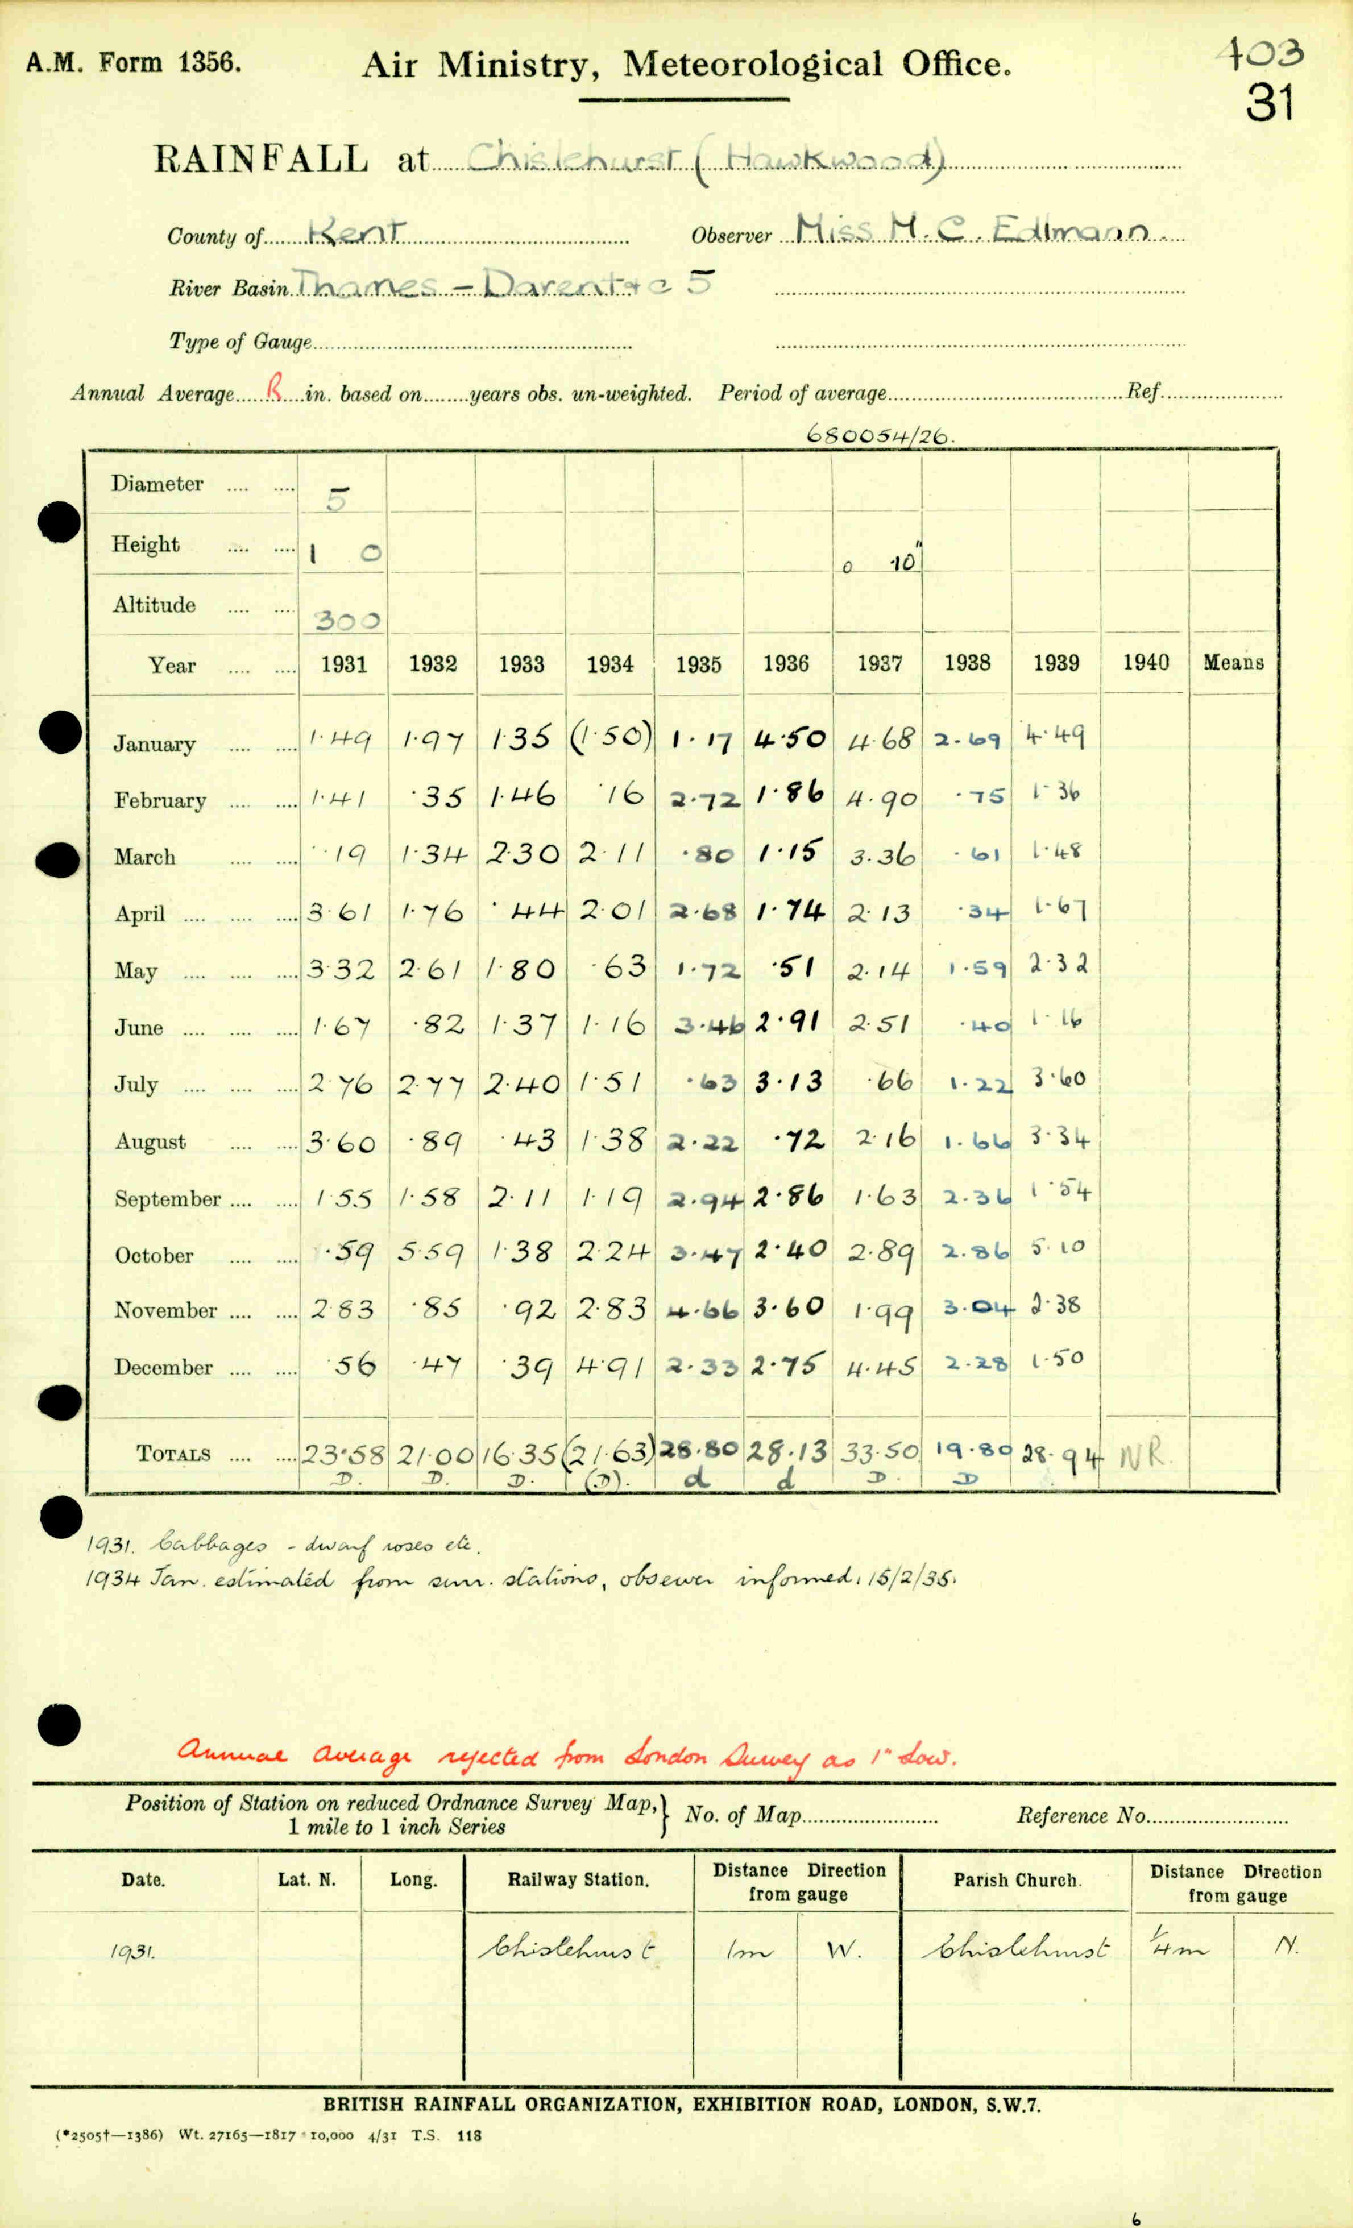 A.M. Form 1356.
Air Ministry, Meteorological Office.
403
31
RAINFALL at Chislehurst (Hawkwood)
County of Kent Observer Miss M. C. Edlmann.
River Basin Thames – Darent &c 5
Type of Gauge
Annual Average R in. based on years obs. un-weighted. Period of average Ref.
680054/26.
Diameter 5
Height 1 0 0 10"
Altitude 300
Year 1931 1932 1933 1934 1935 1936 1937 1938 1939 1940 Means
January 1·49 1·97 1·35 (1·50) 1·17 4·50 4·68 2·69 4·49
February 1·41 ·35 1·46 ·16 2·72 1·86 4·90 ·75 1·36
March ·19 1·34 2·30 2·11 ·80 1·15 3·36 ·61 1·48
April 3·61 1·76 ·44 2·01 2·68 1·74 2·13 ·34 1·67
May 3·32 2·61 1·80 ·63 1·72 ·51 2·14 1·59 2·32
June 1·67 ·82 1·37 1·16 3·46 2·91 2·51 ·40 1·16
July 2·76 2·77 2·40 1·51 ·63 3·13 ·66 1·22 3·60
August 3·60 ·89 ·43 1·38 2·22 ·72 2·16 1·66 3·34
September 1·55 1·58 2·11 1·19 2·94 2·86 1·63 2·36 1·54
October ·59 5·59 1·38 2·24 3·47 2·40 2·89 2·86 5·10
November 2·83 ·85 ·92 2·83 4·66 3·60 1·99 3·04 2·38
December ·56 ·47 ·39 4·91 2·33 2·75 4·45 2·28 1·50
TOTALS 23·58 21·00 16·35 (21·63) 28·80 28·13 33·50 19·80 28·94 NR.
D. D. D. (D). d d D. D
1931. Cabbages - dwarf roses etc.
1934 Jan. estimated from surr. stations, observer informed. 15/2/35.
Annual average rejected from London Survey as 1" low.
Position of Station on reduced Ordnance Survey Map, 1 mile to 1 inch Series } No. of Map Reference No.
Date. Lat. N. Long. Railway Station. Distance Direction from gauge Parish Church. Distance Direction from gauge
1931. Chislehurst 1m W. Chislehurst 1/4 m N.
BRITISH RAINFALL ORGANIZATION, EXHIBITION ROAD, LONDON, S.W.7.
(*2505†—1386) Wt. 27165—1817 10,000 4/31 T.S. 118
6